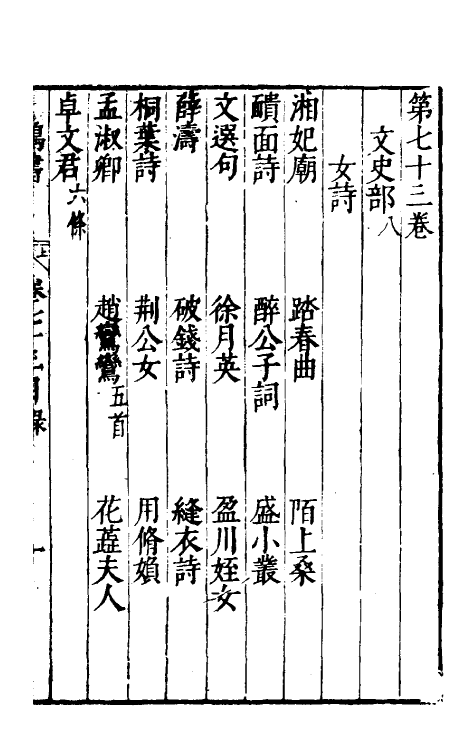 第七十三卷
文史部八
女詩
湘妃廟 踏春曲 陌上桑
靧面詩 醉公子詞 盛小叢
文選句 徐月英 盈川姪女
薛濤 破錢詩 縫衣詩
桐葉詩 荆公女 用脩媍
孟淑卿 趙鸞鸞五首 花蕋夫人
卓文君六條
卷七十三目錄